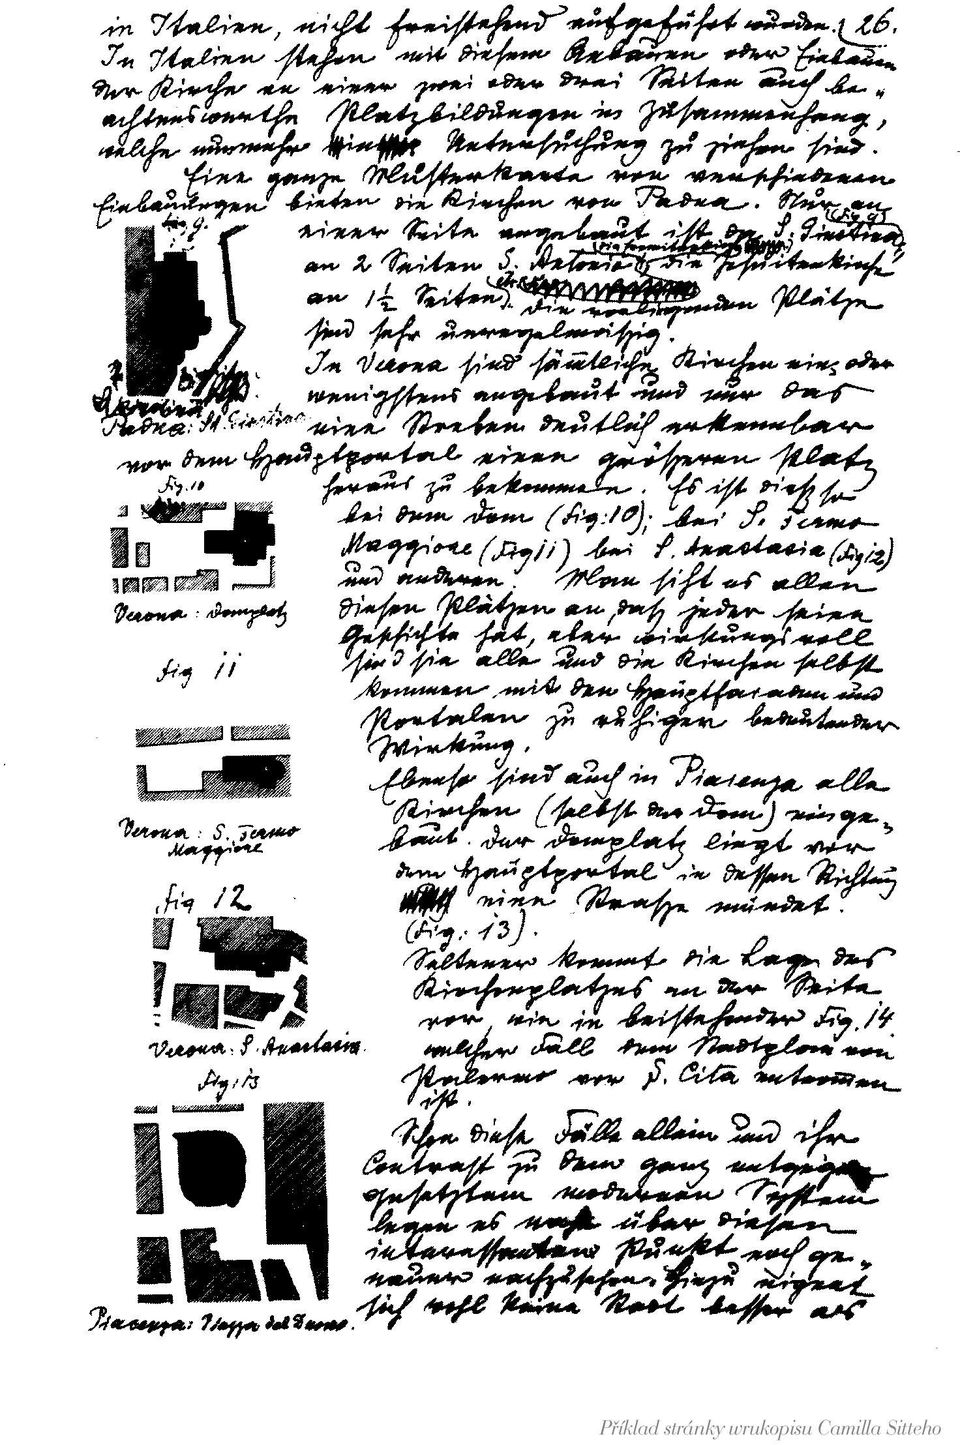 in Italien, nicht freistehend aufgeführt wurden. 26.
In Italien stehen mit diesem Anbauen oder Einbauen
der Kirche an einer zwei oder drei Seiten auch be-
achtenswerthe Platzbildungen in Zusammenhang,
welche nunmehr in Untersuchung zu ziehen sind.
Eine ganze Musterkarte von verschiedenen
Einbauungen bieten die Kirchen von Padua. Nur an
einer Seite angebaut ist da S. Giustina (Fig 9)
an 2 Seiten S. Antonio, die Jesuitenkirche
an 1½ Seiten. die vorliegenden Plätze
sind sehr unregelmässig.
In Verona sind sämtliche Kirchen ein, oder
wenigstens angebaut und nur das
eine Streben deutlich erkennbar
vor dem Hauptportal einen grösseren Platz
heraus zu bekommen. Es ist diess so
bei dem Dom (Fig: 10); bei S. Fermo
Maggiore (Fig 11) bei S. Anastasia (Fig 12)
und anderen. Man siht es allen
diesen Plätzen an, dass jeder seine
Geschichte hat, aber wirkungsvoll
sind sie alle und die Kirchen selbst
kommen mit den Hauptfacaden und
Portalen zu ruhiger bedeutender
Wirkung.
Ebenso sind auch in Piacenza alle
Kirchen (selbst der Dom) einge-
baut. Der Domplatz liegt vor
dem Hauptportal in dessen Richtung
eine Strasse mündet.
(Fig.: 13).
Seltener kommt die Lage des
Kirchenplatzes an der Seite
vor, wie in beistehender Fig. 14
welcher Fall dem Stadtplan von
Palermo vor S. Cita entnommen
ist.
Schon diese Fälle allein und ihr
Contrast zu dem ganz entgegen
gesetztem modernen System
legen es nahe über diesen
interessanten Punkt noch ge-
nauer nachzusehen. Hiezu eignet
sich wohl keine Stadt besser als
Fig. 9.
Padua: St. Giustina
Fig. 10
Verona: Domplatz
Fig 11
Verona: S. Fermo
Maggiore
Fig 12
Verona: S. Anastasia
Fig: 13
Piacenza: Piazza del Duomo.
Příklad stránky wrukopisu Camilla Sitteho